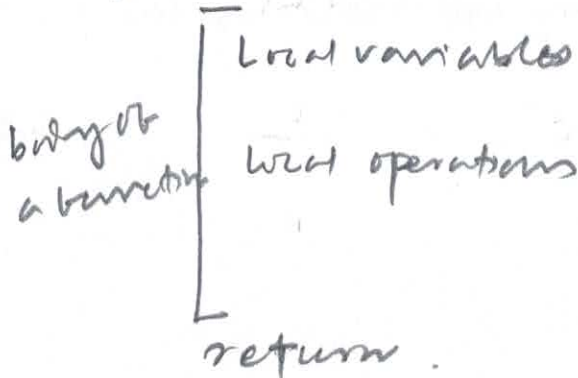 Local variables
body of
a function
local operations
return.